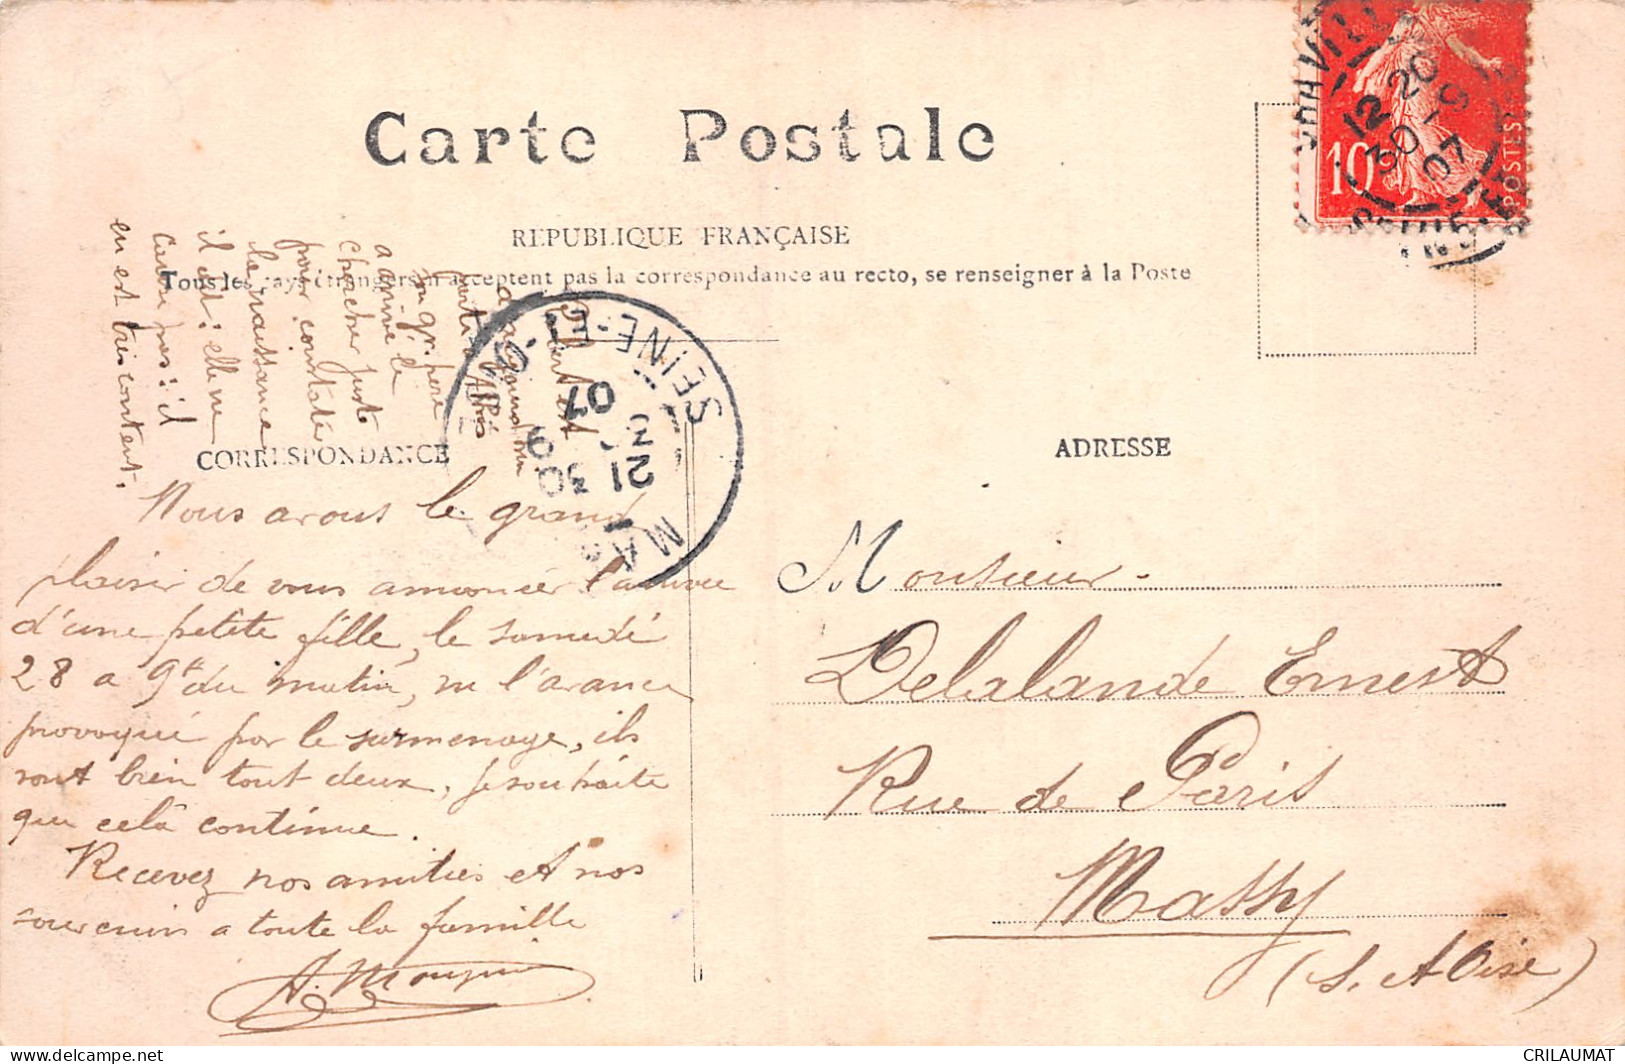 Carte Postale
REPUBLIQUE FRANÇAISE
Tous les pays étrangers n'acceptent pas la correspondance au recto, se renseigner à la Poste
CORRESPONDANCE
ADRESSE
10c
POSTES
12 20
30 - 9
07
SEINE-ET-O
MAS
21 30
30 9
07
Nous avons le grand
plaisir de vous annoncer l'arrivée
d'une petite fille, le samedi
28 a 9h du matin, vu l'avance
provoqué par le surmenage, ils
vont bien tout deux, je souhaite
que celà continue.
Recevez nos amitiés et nos
souvenirs a toute la famille
Monsieur
Delalande Ernest
Rue de Paris
Massy
(S. et Oise)
son gr. père
a arrivé le
chercher juste
pour constater
la naissance
il dit: elle ne
pas: il
en est très content.
CRILAUMAT